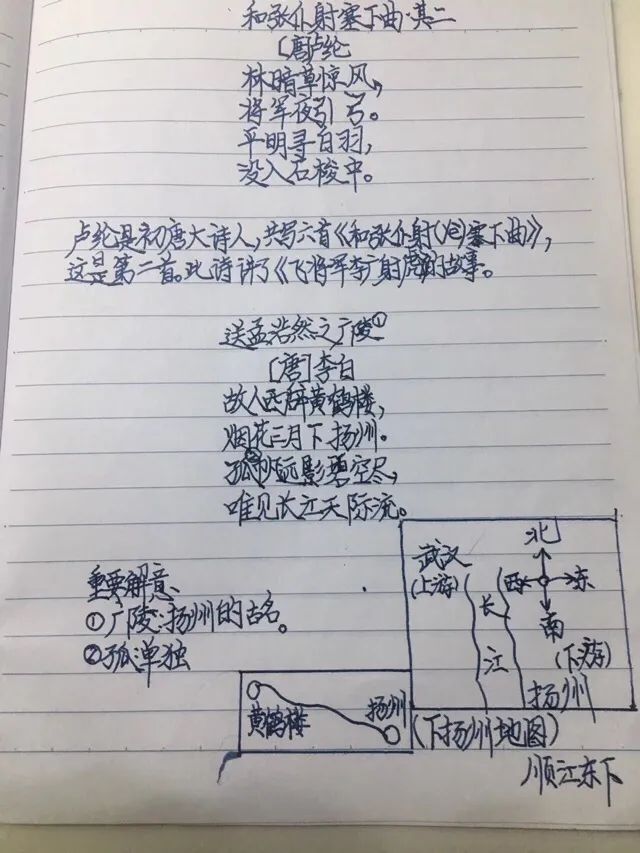 和张仆射塞下曲·其二
[唐]卢纶
林暗草惊风,
将军夜引弓。
平明寻白羽,
没入石梭中。
卢纶是初唐大诗人,共写六首《和张仆射塞下曲》,
这是第二首。此诗讲了《飞将军李广射虎的故事。
送孟浩然之广陵①
[唐]李白
故人西辞黄鹤楼,
烟花三月下扬州。
孤②帆远影碧空尽,
唯见长江天际流。
重要解意:
①广陵:扬州的古名。
②孤:单独
黄鹤楼
扬州
武汉
(上游)
长
江
北
西
东
南
(下游)
扬州
(下扬州地图)
顺江东下